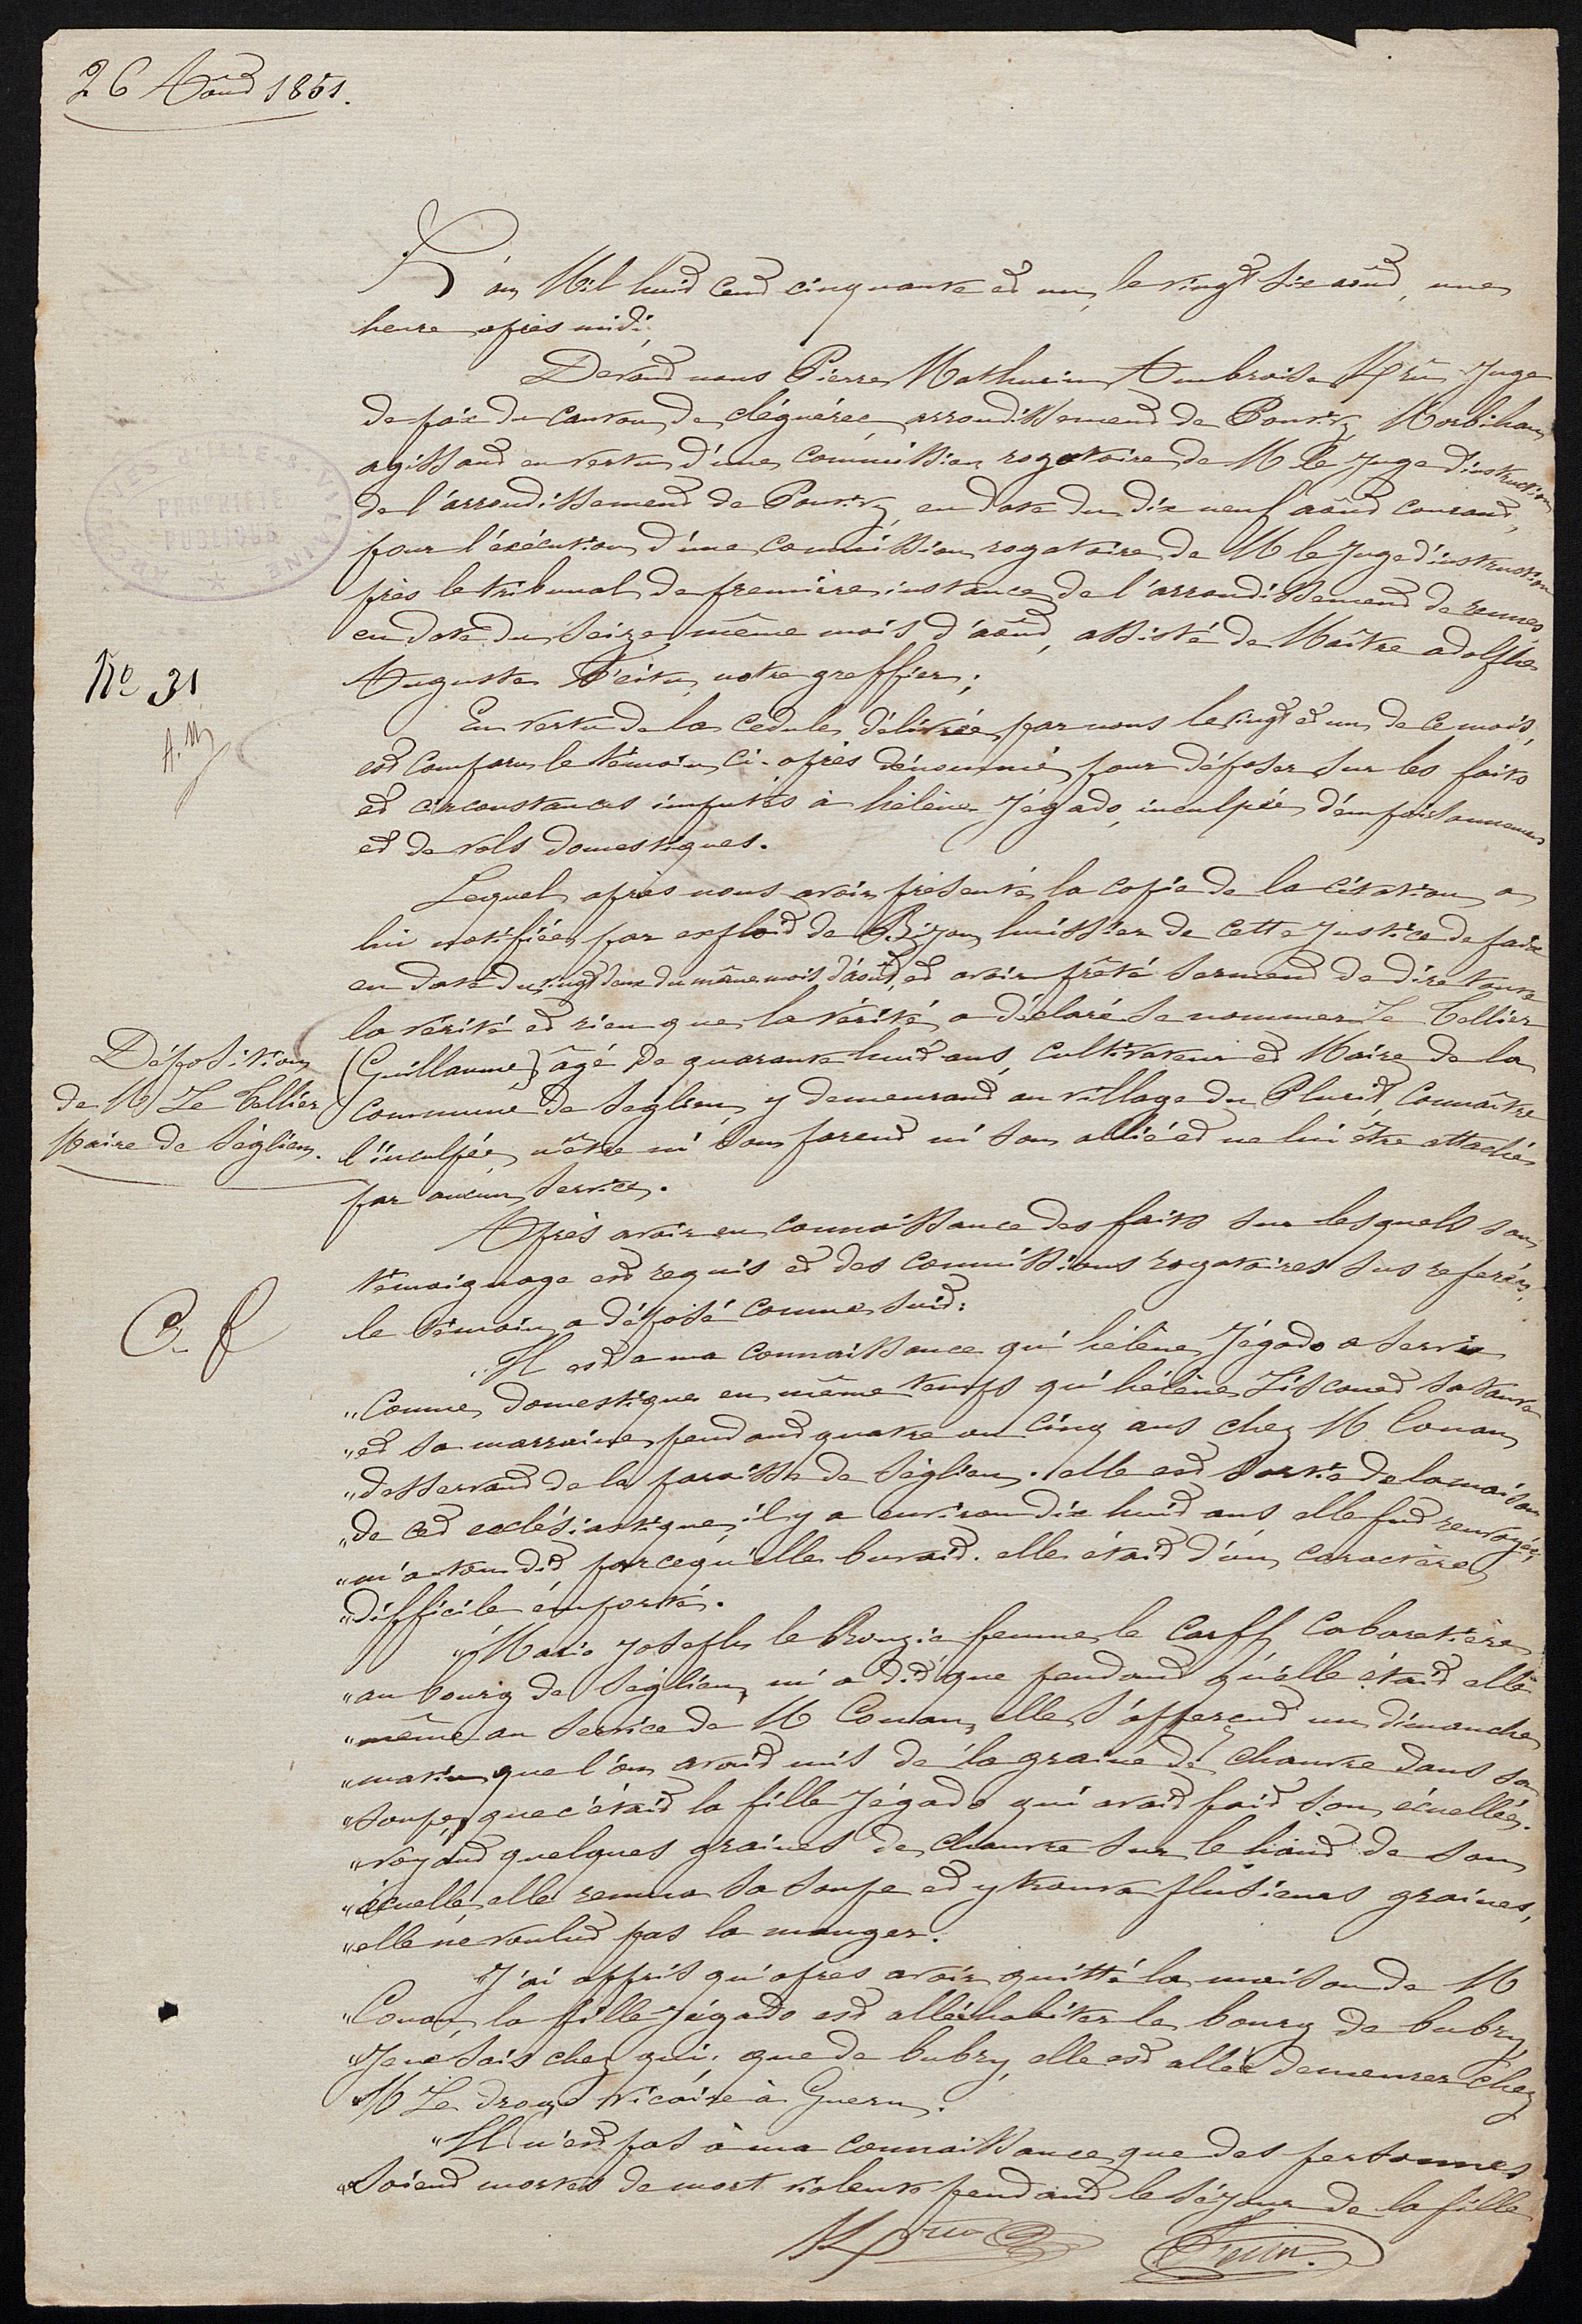 26 Août 1851.
L'an Mil huit cent cinquante et un, le vingt six août, une
heure après midi,
Devant nous Pierre Mathurin Ambroise Juge
de paix du canton de cléguérec, arrondissement de Pontivy, Morbihan
agissant en vertu d'une commission rogatoire de M le Juge d'instruction
de l'arrondissement de Pontivy, en date du dix neuf août courant,
pour l'éxécution d'une commission rogatoire de M le Juge d'instruction
près le tribunal de première instance de l'arrondissement de rennes,
en date du seize même mois d'août, assisté de Maître adolphe
Auguste notre greffier;
En vertu de la cédule délivrée par nous le vingt et un de ce mois,
est comparu le témoin ci-après dénommé, pour déposer sur les faits
et circonstances imputés à hélène Jégado, inculpée d'empoisonnement
et de vols domestiques.
Lequel après nous avoir présenté la copie de la citation a
lui notifiée par exploit de Bizon huissier de cette justice de paix
en date du vingt deux du même mois d'août, et avoir prêté serment de dire toute
la vérité et rien que la vérité, a déclaré se nommer Le Tellier
(Guillaume) âgé de quarante huit ans, cultivateur et Maire de la
commune de Séglien, y demeurant au village du Plunit, connaître
l'inculpée, n'être ni son parent ni son allié et ne lui être attaché
par aucun service.
Après avoir eu connaissance des faits sur lesquels son
témoignage est requis et des commissions rogatoires sus référées,
le témoin a déposé comme suit:
"Il est a ma connaissance qu'hélène Jégado a servie
"comme domestique en même temps qu'hélène Liscouet sa tante
"et sa marraine, pendant quatre ou cinq ans chez M Conan
"desservant de la paroisse de Séglien. elle est sortie de la maison
"de cet ecclésiastique, il y a environ dix huit ans, elle fut renvoyée,
"m'a-t-on dit parcequ'elle buvait. elle était d'un caractère
"difficile emporté.
"Marie Josephe le Bouzic femme le Carff Cabaretière
"au bourg de Séglien, m'a dit que pendant qu'elle était elle
"même au service de M Conan, elle s'apperçut un dimanche
"matin que l'on avait mis de la graine de chanvre dans sa
"soupe, que c'était la fille Jégado qui avait fait son écuellée.
"voyant quelques graines de chanvre sur le haut de son
"écuellé, elle remua sa soupe et y trouva plusieurs graines,
"elle ne voulut pas la manger.
"J'ai appris qu'après avoir quitté la maison de M
"Conan, la fille Jégado est allée habiter le bourg de bubry,
"Je ne sais chez qui; que de bubry, elle est allée demeurer chez
"M Le drogo vicaire à Guern.
"Il n'est pas à ma connaissance que des personnes
"soient mortes de mort violente pendant le séjour de la fille
No 31
Déposition
de M Le Tellier
Maire de Séglien.
ARCHIVES D'ILLE-&-VILAINE
PROPRIÉTÉ
PUBLIQUE